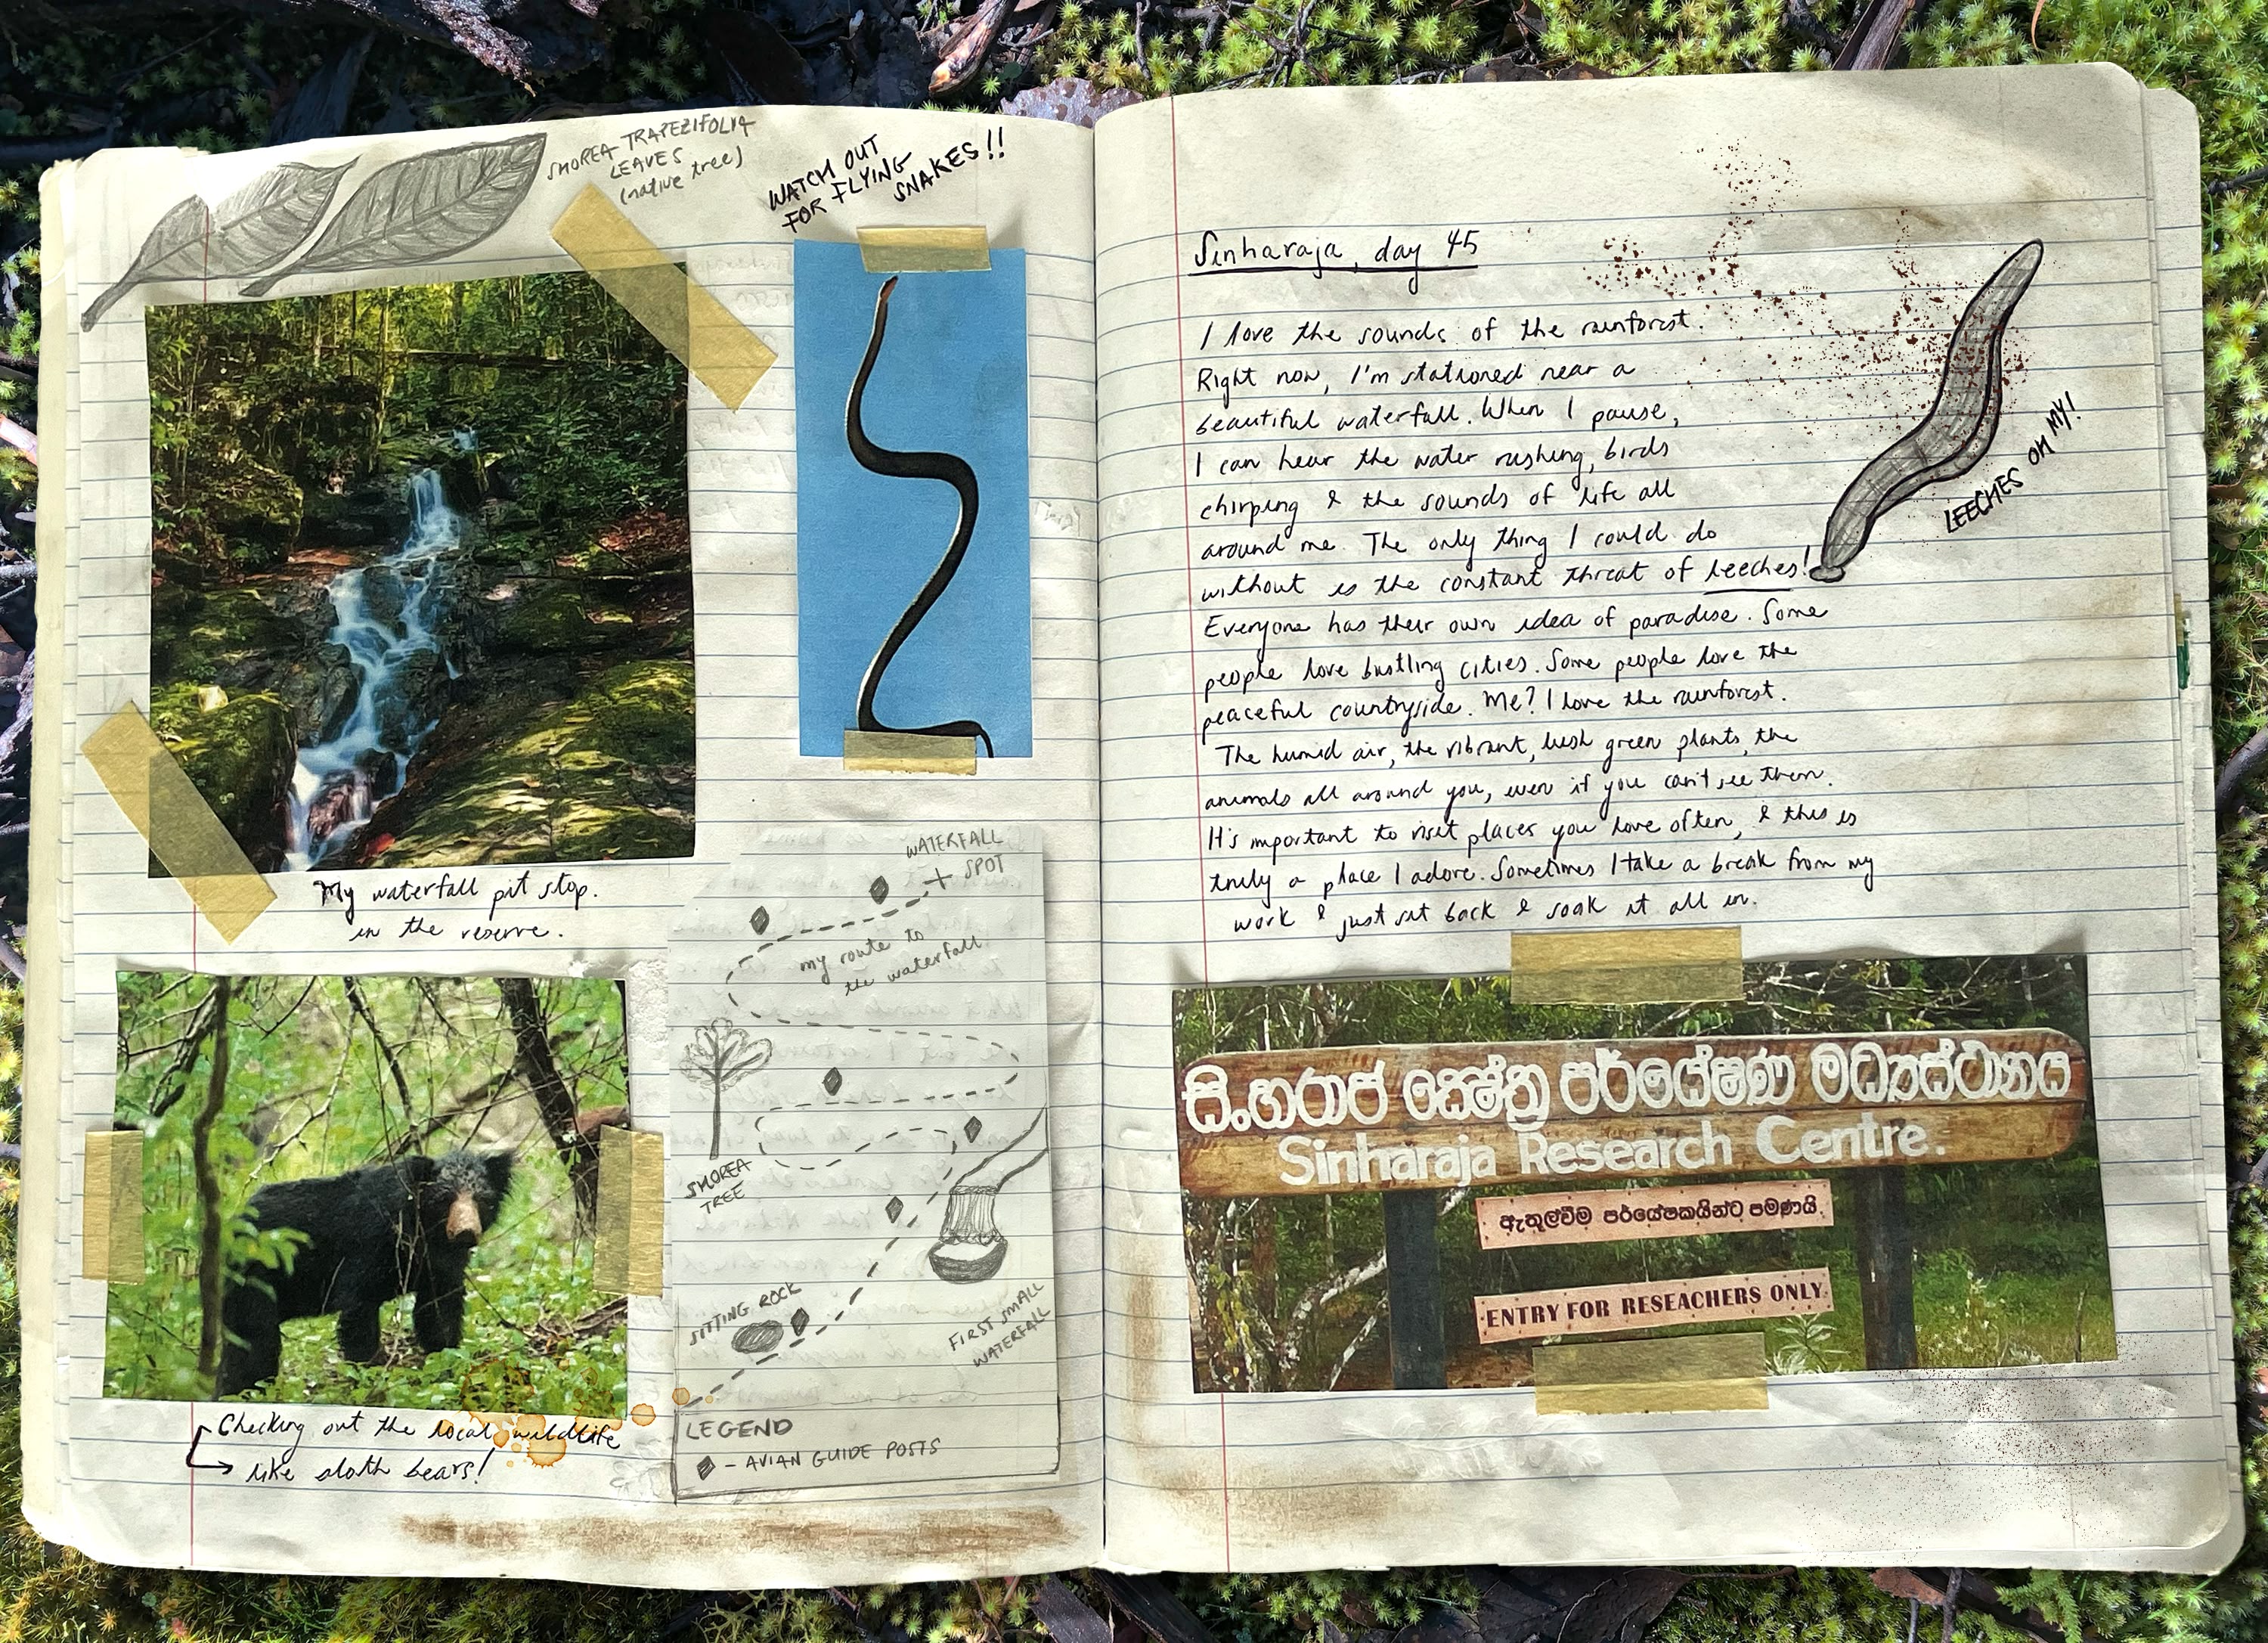 SHOREA TRAPEZIFOLIA
LEAVES
(native tree)
WATCH OUT
FOR FLYING
SNAKES!!
My waterfall pit stop.
in the reserve.
Checking out the local wildlife
like sloth bears!
WATERFALL
SPOT
my route to
the waterfall
SHOREA
TREE
SITTING ROCK
FIRST SMALL
WATERFALL
LEGEND
- AVIAN GUIDE POSTS
Sinharaja, day 45
I love the sounds of the rainforest.
Right now, I'm stationed near a
beautiful waterfall. When I pause,
I can hear the water rushing, birds
chirping & the sounds of life all
around me. The only thing I could do
without is the constant threat of leeches!
Everyone has their own idea of paradise. Some
people love bustling cities. Some people love the
peaceful countryside. Me? I love the rainforest.
The humid air, the vibrant, lush green plants, the
animals all around you, even if you can't see them.
It's important to visit places you love often, & this is
truly a place I adore. Sometimes I take a break from my
work & just sit back & soak it all in.
LEECHES OH MY!
සිංහරාජ ක්ෂේත්‍ර පර්යේෂණ මධ්‍යස්ථානය
Sinharaja Research Centre.
ඇතුල්වීම පර්යේෂකයින්ට පමණයි.
ENTRY FOR RESEACHERS ONLY.